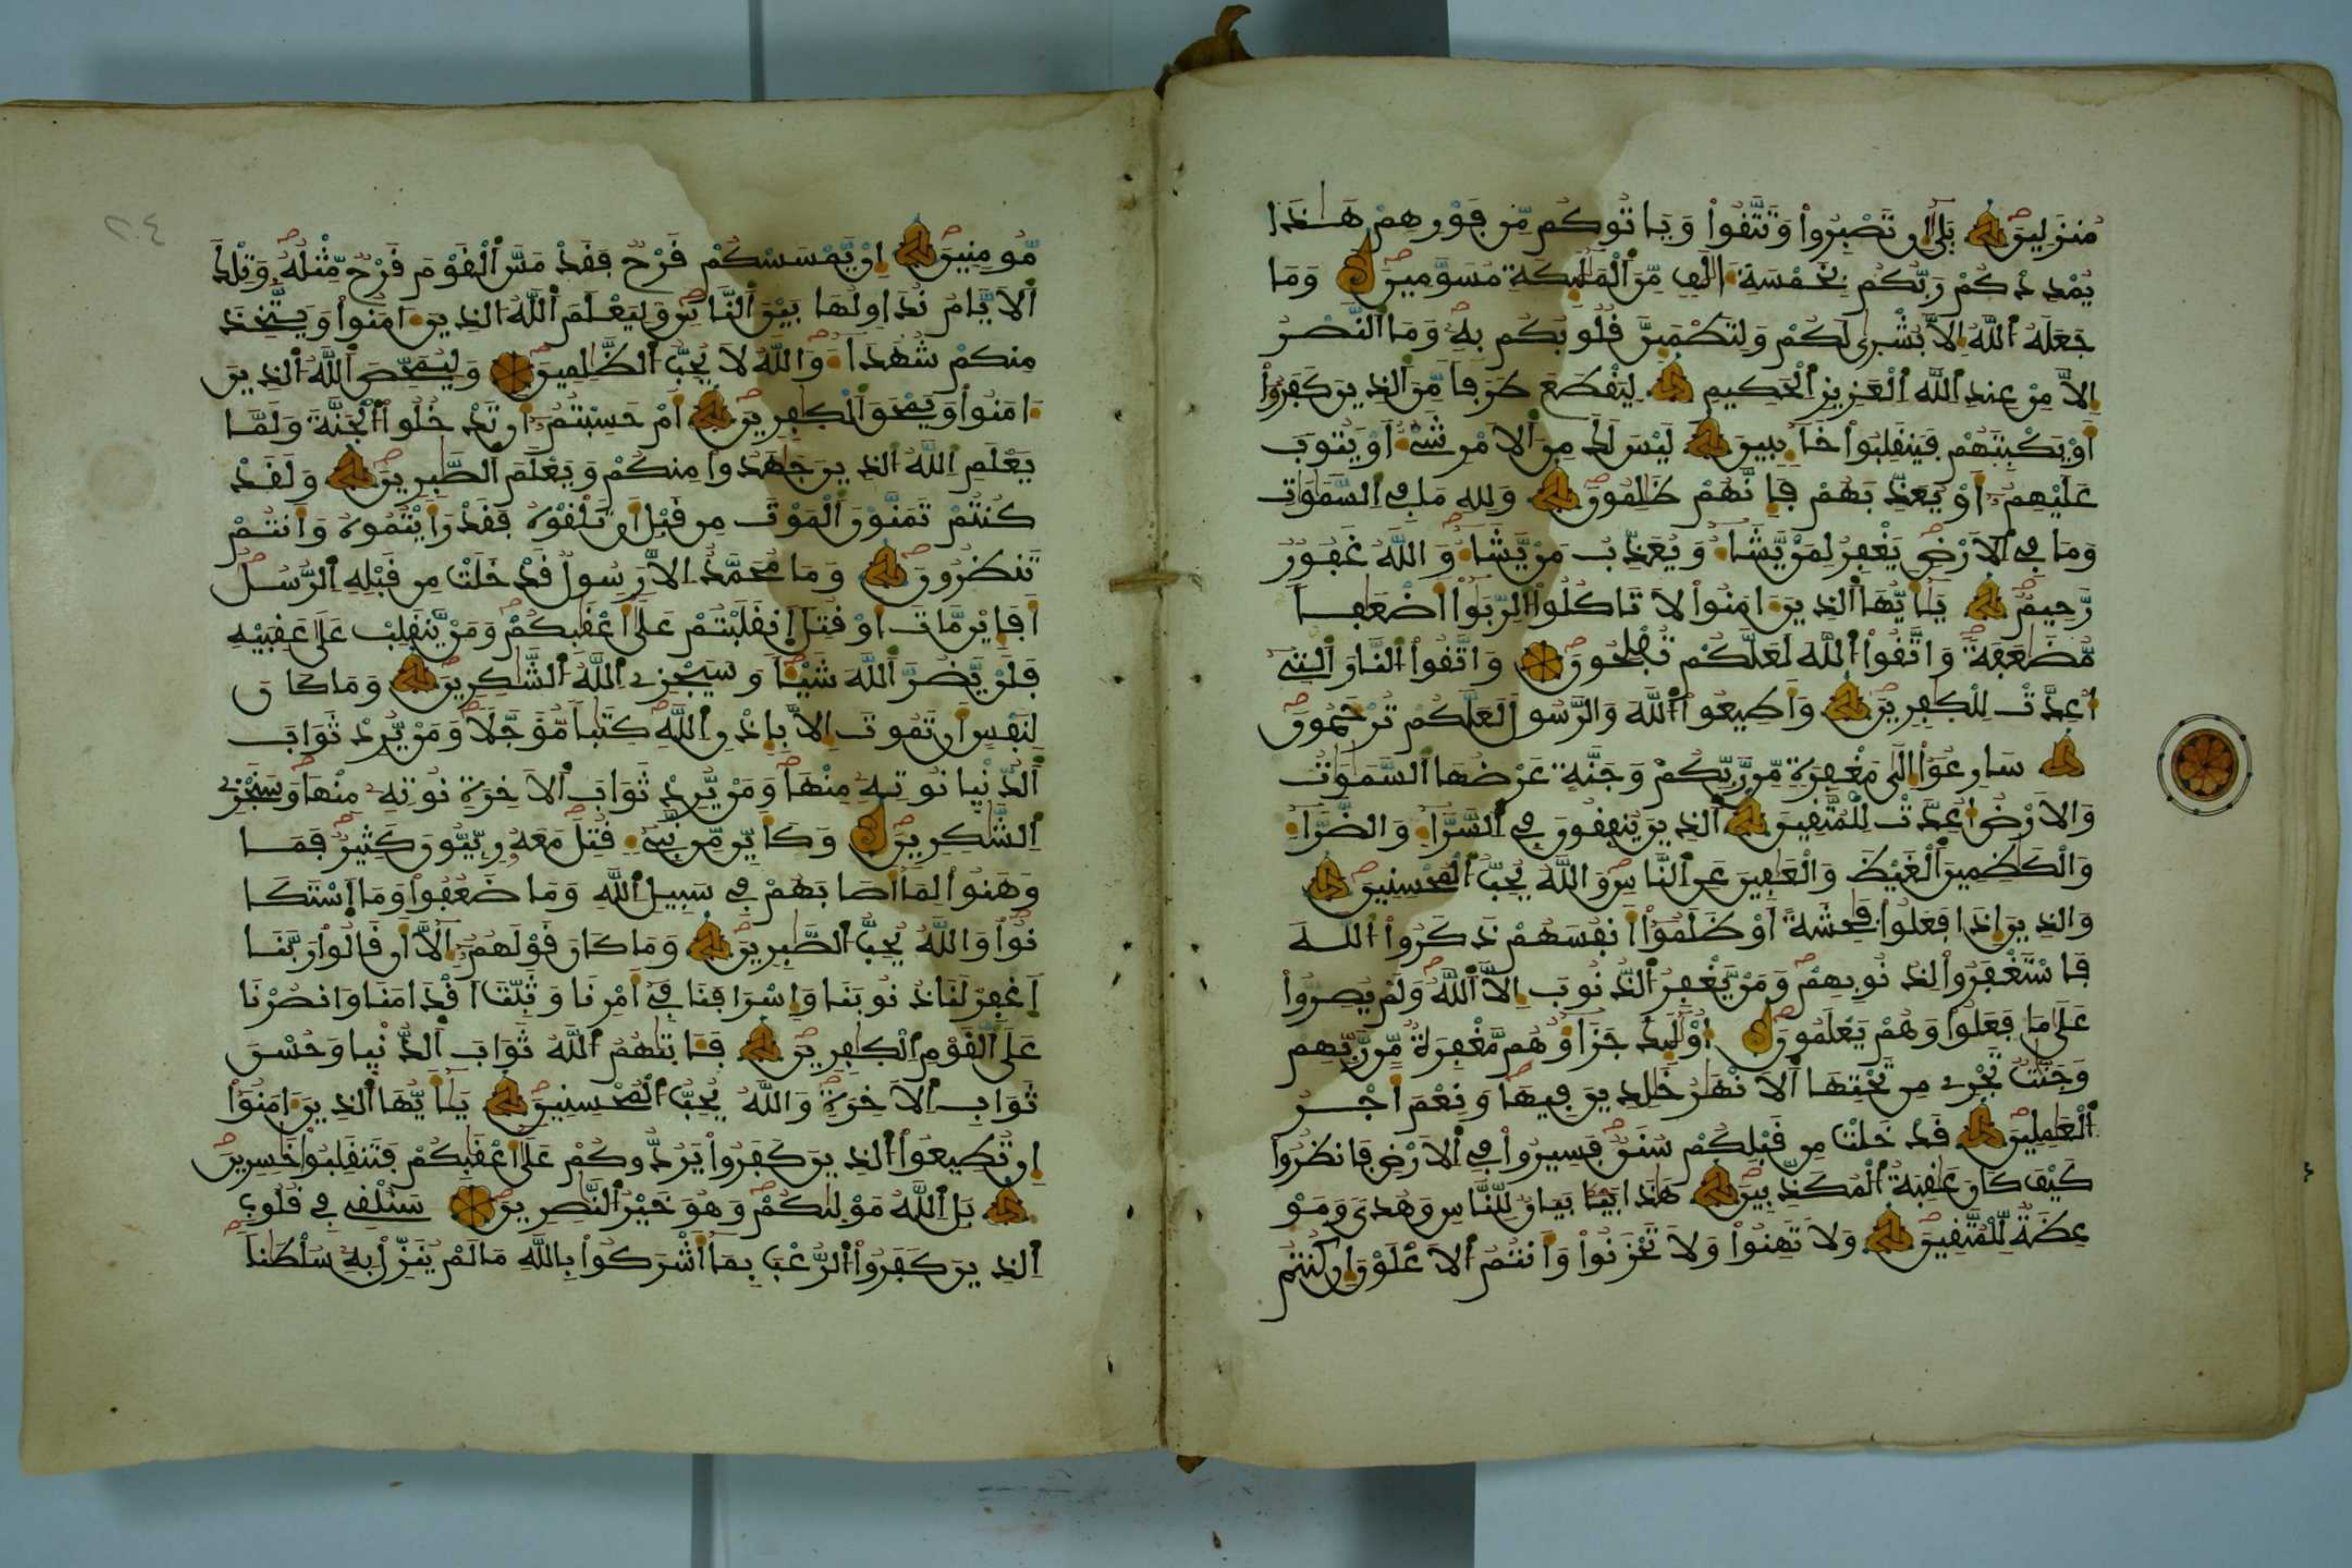 مُنزَلِينَ بَلَىٰ إِن تَصْبِرُوا۟ وَتَتَّقُوا۟ وَيَاتُوكُم مِّن فَوْرِهِمْ هَـٰذَا
يُمْدِدْكُمْ رَبُّكُم بِخَمْسَةِ ءَالَٰفٍ مِّنَ ٱلْمَلَٰئِكَةِ مُسَوَّمِينَ وَمَا
جَعَلَهُ ٱللَّهُ إِلَّا بُشْرَىٰ لَكُمْ وَلِتَطْمَئِنَّ قُلُوبُكُم بِهِۦ وَمَا ٱلنَّصْرُ
إِلَّا مِنْ عِندِ ٱللَّهِ ٱلْعَزِيزِ ٱلْحَكِيمِ لِيَقْطَعَ طَرَفاً مِّنَ ٱلذِينَ كَفَرُوٓا۟
أَوْ يَكْبِتَهُمْ فَيَنقَلِبُوا۟ خَآئِبِينَ لَيْسَ لَكَ مِنَ ٱلَامْرِ شَےْءٌ اَوْ يَتُوبَ
عَلَيْهِمُۥٓ أَوْ يُعَذِّبَهُمْ فَإِنَّهُمْ ظَٰلِمُونَ وَلِلهِ مَا فِے ٱلسَّمَٰوَٰتِ
وَمَا فِے ٱلَارْضِ يَغْفِرُ لِمَنْ يَّشَآءُ وَيُعَذِّبُ مَنْ يَّشَآءُ وَاللَّهُ غَفُورٌ
رَّحِيمٌ يَٰٓأَيُّهَا ٱلذِينَ ءَامَنُوا۟ لَا تَاكُلُوا۟ ٱلرِّبَوٰٓا۟ أَضْعَٰفاً
مُّضَٰعَفَةً وَاتَّقُوا۟ ٱللَّهَ لَعَلَّكُمْ تُفْلِحُونَ وَاتَّقُوا۟ ٱلنَّارَ ٱلتِےٓ
أُعِدَّتْ لِلْكَٰفِرِينَ وَأَطِيعُوا۟ ٱللَّهَ وَالرَّسُولَ لَعَلَّكُمْ تُرْحَمُونَ
سَارِعُوٓا۟ إِلَىٰ مَغْفِرَةٍ مِّن رَّبِّكُمْ وَجَنَّةٍ عَرْضُهَا ٱلسَّمَٰوَٰتُ
وَالَارْضُ أُعِدَّتْ لِلْمُتَّقِينَ ٱلذِينَ يُنفِقُونَ فِے ٱلسَّرَّآءِ وَالضَّرَّآءِ
وَالْكَٰظِمِينَ ٱلْغَيْظَ وَالْعَافِينَ عَنِ ٱلنَّاسِ وَاللَّهُ يُحِبُّ ٱلْمُحْسِنِينَ
وَالذِينَ إِذَا فَعَلُوا۟ فَٰحِشَةً اَوْ ظَلَمُوٓا۟ أَنفُسَهُمْ ذَكَرُوا۟ ٱللَّهَ
فَاسْتَغْفَرُوا۟ لِذُنُوبِهِمْ وَمَنْ يَّغْفِرُ ٱلذُّنُوبَ إِلَّا ٱللَّهُ وَلَمْ يُصِرُّوا۟
عَلَىٰ مَا فَعَلُوا۟ وَهُمْ يَعْلَمُونَ أُو۟لَٰٓئِكَ جَزَآؤُهُم مَّغْفِرَةٌ مِّن رَّبِّهِمْ
وَجَنَّٰتٌ تَجْرِے مِن تَحْتِهَا ٱلَانْهَٰرُ خَٰلِدِينَ فِيهَا وَنِعْمَ أَجْرُ
ٱلْعَٰمِلِينَ قَدْ خَلَتْ مِن قَبْلِكُمْ سُنَنٌ فَسِيرُوا۟ فِے ٱلَارْضِ فَانظُرُوا۟
كَيْفَ كَانَ عَٰقِبَةُ ٱلْمُكَذِّبِينَ هَٰذَا بَيَانٌ لِّلنَّاسِ وَهُدىً وَمَوْ
عِظَةٌ لِّلْمُتَّقِينَ وَلَا تَهِنُوا۟ وَلَا تَحْزَنُوا۟ وَأَنتُمُ ٱلَاعْلَوْنَ إِن كُنتُم
مُّومِنِينَ إِنْ يَّمْسَسْكُمْ قَرْحٌ فَقَدْ مَسَّ ٱلْقَوْمَ قَرْحٌ مِّثْلُهُۥ وَتِلْكَ
ٱلَايَّامُ نُدَاوِلُهَا بَيْنَ ٱلنَّاسِ وَلِيَعْلَمَ ٱللَّهُ ٱلذِينَ ءَامَنُوا۟ وَيَتَّخِذَ
مِنكُمْ شُهَدَآءَ وَاللَّهُ لَا يُحِبُّ ٱلظَّٰلِمِينَ وَلِيُمَحِّصَ ٱللَّهُ ٱلذِينَ
ءَامَنُوا۟ وَيَمْحَقَ ٱلْكَٰفِرِينَ أَمْ حَسِبْتُمُۥٓ أَن تَدْخُلُوا۟ ٱلْجَنَّةَ وَلَمَّا
يَعْلَمِ ٱللَّهُ ٱلذِينَ جَٰهَدُوا۟ مِنكُمْ وَيَعْلَمَ ٱلصَّٰبِرِينَ وَلَقَدْ
كُنتُمْ تَمَنَّوْنَ ٱلْمَوْتَ مِن قَبْلِ أَن تَلْقَوْهُ فَقَدْ رَأَيْتُمُوهُ وَأَنتُمْ
تَنظُرُونَ وَمَا مُحَمَّدٌ اِلَّا رَسُولٌ قَدْ خَلَتْ مِن قَبْلِهِ ٱلرُّسُلُ
أَفَإِيْن مَّاتَ أَوْ قُتِلَ ٱنقَلَبْتُمْ عَلَىٰٓ أَعْقَٰبِكُمْ وَمَنْ يَّنقَلِبْ عَلَىٰ عَقِبَيْهِ
فَلَنْ يَّضُرَّ ٱللَّهَ شَيْـٔاً وَسَيَجْزِے ٱللَّهُ ٱلشَّٰكِرِينَ وَمَا كَانَ
لِنَفْسٍ أَن تَمُوتَ إِلَّا بِإِذْنِ ٱللَّهِ كِتَٰباً مُّؤَجَّلاً وَمَنْ يُّرِدْ ثَوَابَ
ٱلدُّنْيا نُوتِهِۦ مِنْهَا وَمَنْ يُّرِدْ ثَوَابَ ٱلَاخِرَةِ نُوتِهِۦ مِنْهَا وَسَنَجْزِے
ٱلشَّٰكِرِينَ وَكَأَيِّن مِّن نَّبِےٓءٍ قُتِلَ مَعَهُۥ رِبِّيُّونَ كَثِيرٌ فَمَا
وَهَنُوا۟ لِمَآ أَصَابَهُمْ فِے سَبِيلِ ٱللَّهِ وَمَا ضَعُفُوا۟ وَمَا ٱسْتَكَا
نُوا۟ وَاللَّهُ يُحِبُّ ٱلصَّٰبِرِينَ وَمَا كَانَ قَوْلَهُمُۥٓ إِلَّآ أَن قَالُوا۟ رَبَّنَا
ٱغْفِرْ لَنَا ذُنُوبَنَا وَإِسْرَافَنَا فِےٓ أَمْرِنَا وَثَبِّتَ اَقْدَامَنَا وَانصُرْنَا
عَلَى ٱلْقَوْمِ ٱلْكَٰفِرِينَ فَـَٔاتَىٰهُمُ ٱللَّهُ ثَوَابَ ٱلدُّنْيا وَحُسْنَ
ثَوَابِ ٱلَاخِرَةِ وَاللَّهُ يُحِبُّ ٱلْمُحْسِنِينَ يَٰٓأَيُّهَا ٱلذِينَ ءَامَنُوٓا۟
إِن تُطِيعُوا۟ ٱلذِينَ كَفَرُوا۟ يَرُدُّوكُمْ عَلَىٰٓ أَعْقَٰبِكُمْ فَتَنقَلِبُوا۟ خَٰسِرِينَ
بَلِ ٱللَّهُ مَوْلَىٰكُمْ وَهُوَ خَيْرُ ٱلنَّٰصِرِينَ سَنُلْقِے فِے قُلُوبِ
ٱلذِينَ كَفَرُوا۟ ٱلرُّعْبَ بِمَآ أَشْرَكُوا۟ بِاللَّهِ مَا لَمْ يُنَزِّلْ بِهِۦ سُلْطَٰناً
٢٠٤